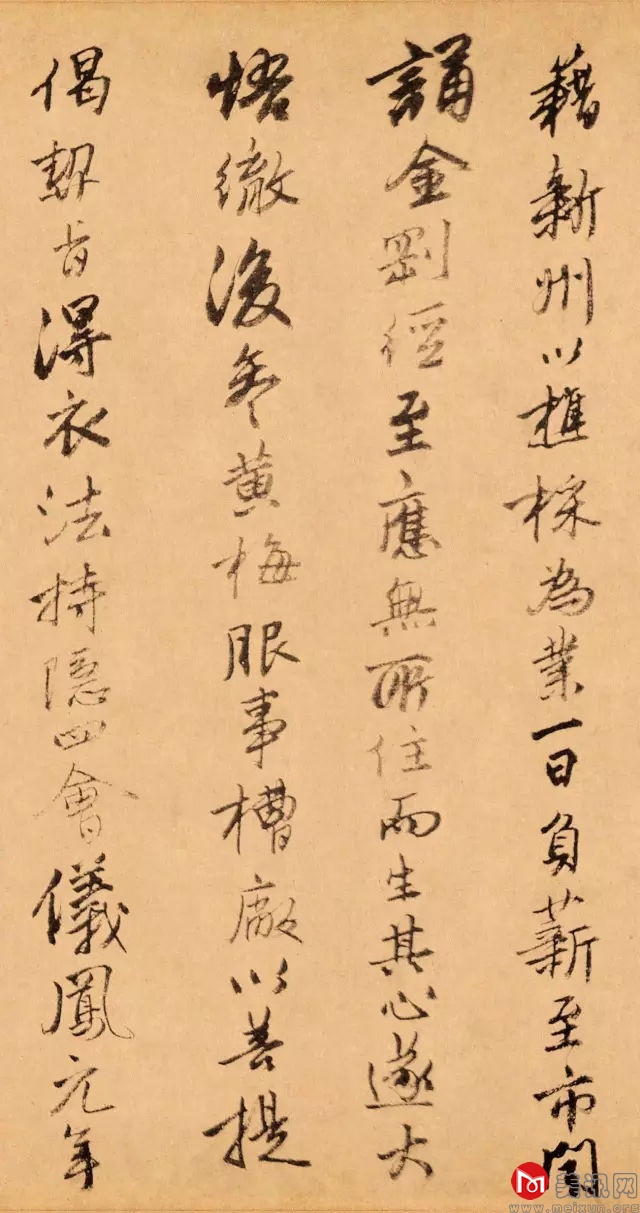 藉新州以樵採為業一日負薪至市聞
誦金剛經至應無所住而生其心遂大
悟徹後参黄梅服事槽廠以菩提
偈契旨得衣法持隱四會儀鳳元年
美讯网
www.meixun.org